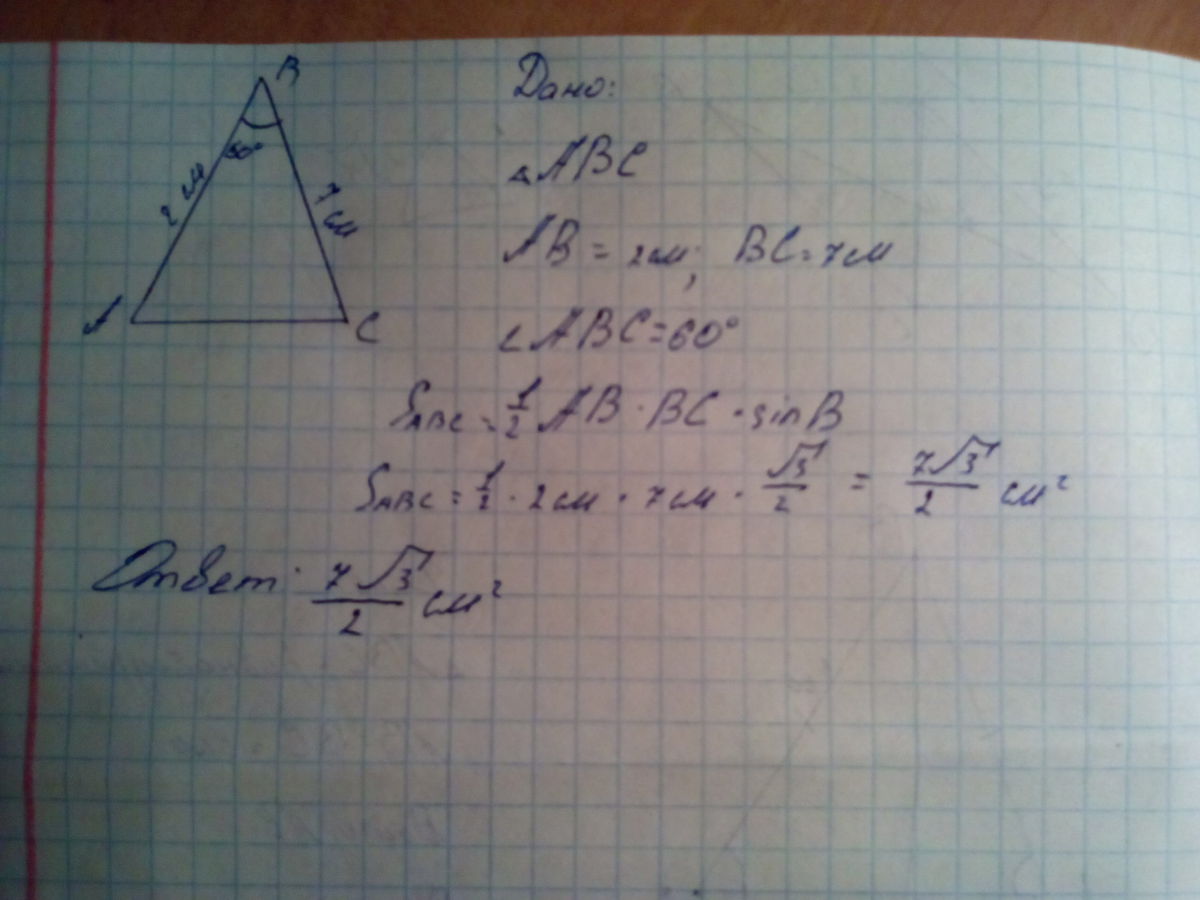 B
60°
2 см
7 см
A
C
Дано:
△ABC
AB = 2см; BC = 7см
∠ABC=60°
S_ABC = 1/2 AB · BC · sin B
S_ABC = 1/2 · 2см · 7см · √3/2 = 7√3/2 см²
Ответ: 7√3/2 см²